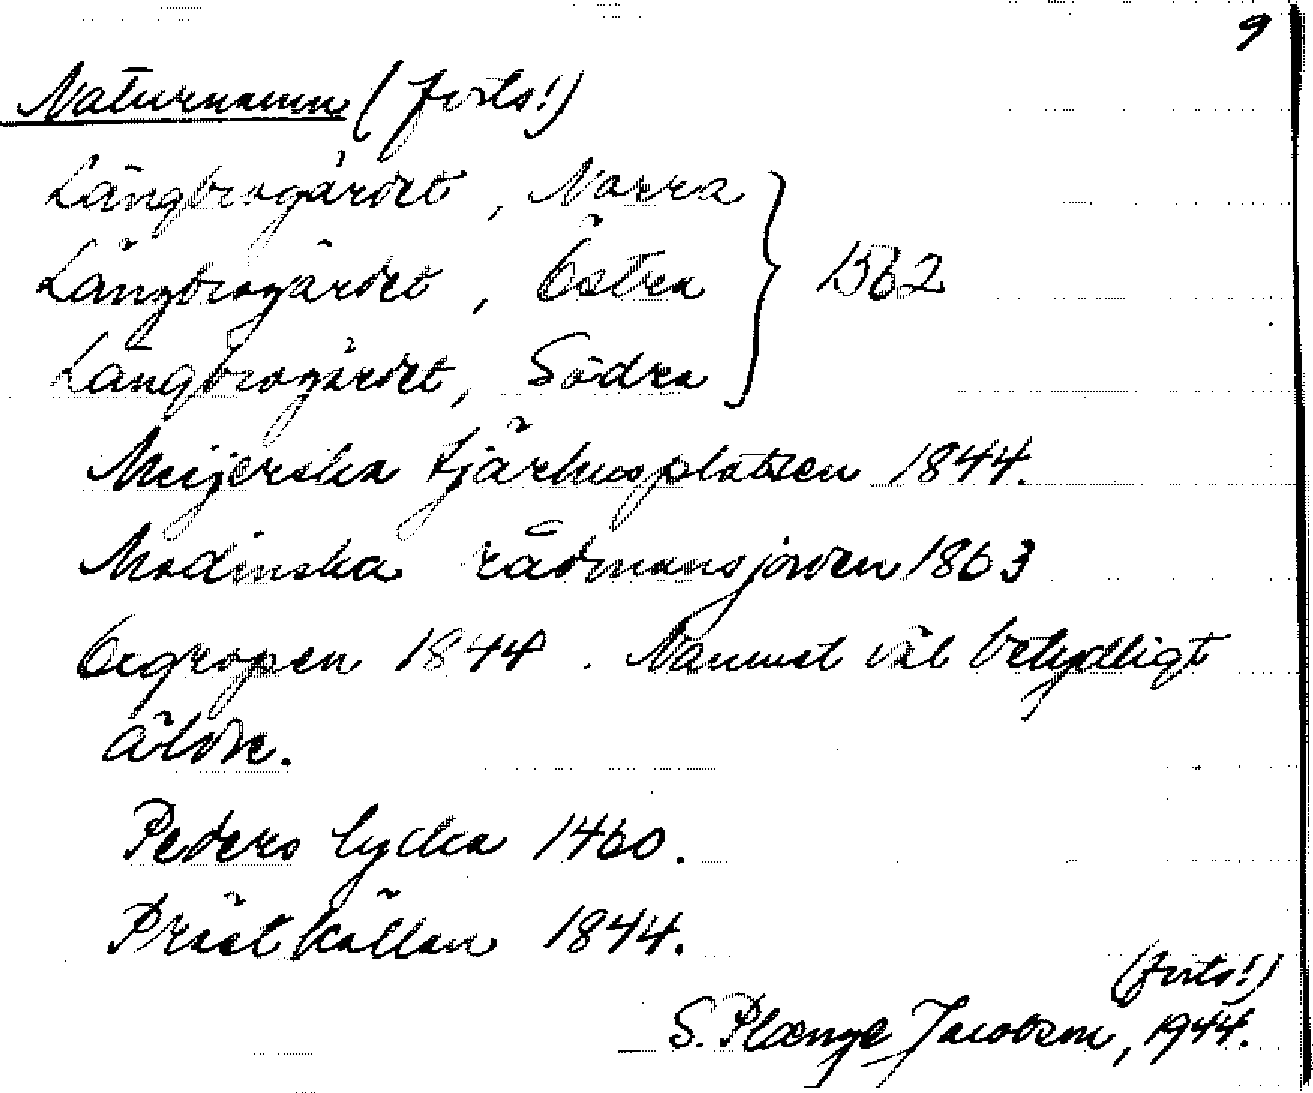 9
Naturnamn (forts!)
Långbrogärdet, Norra
Långbrogärdet, Östra } 1562
Långbrogärdet, Södra
Meijerska tjärhusplatsen 1844.
Modinska rådmansjorden 1863
Orgropen 1844. Namnet väl betydligt
äldre.
Peders lycka 1460.
Prästkällan 1844.
(forts!)
S. Plænge Jacobson, 1944.